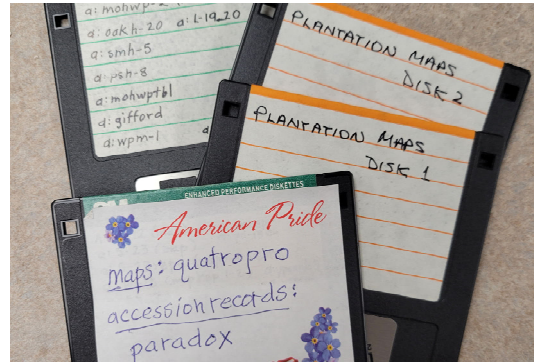 a: mohwp-2
a: ookh-20 a: l-19_20
a: smh-5
a: psh-8
a: mohwptbl
a: gifford
a: wpm-1 a
PLANTATION MAPS
DISK 2
PLANTATION MAPS
DISK 1
ENHANCED PERFORMANCE DISKETTES
American Pride
maps: quatropro
accession records:
paradox